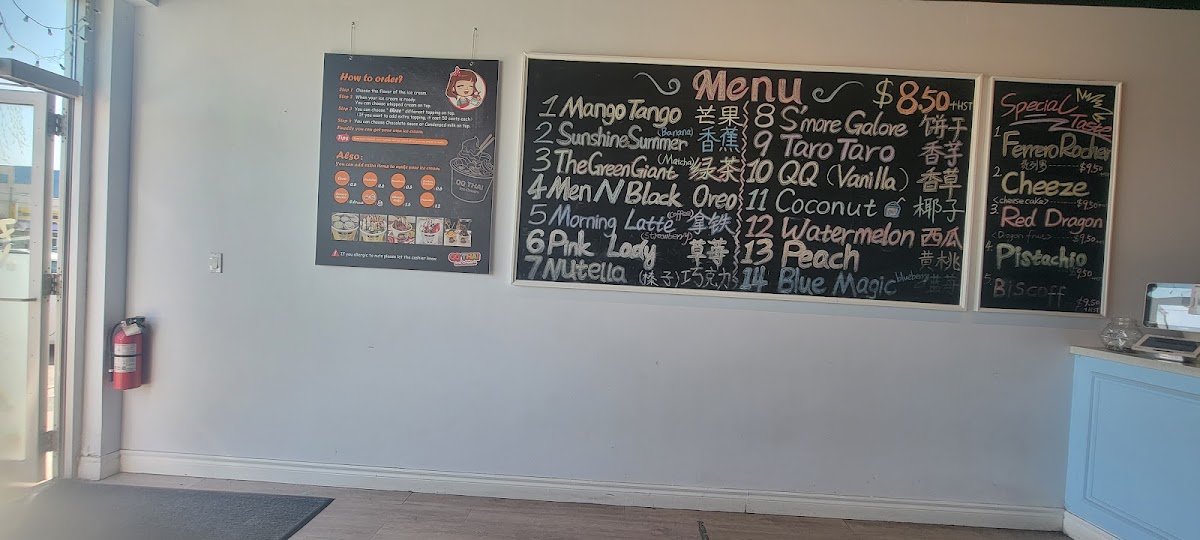 How to order?
Step 1 Choose the flavor of the ice cream.
Step 2 When your ice cream is ready
You can choose whipped cream on top.
Step 3 You can choose
different topping on top.
(If you want to add extra topping, it cost 50 cents each)
Step 4 You can choose Chocolate sauce or Condensed milk on top.
Finally you can get your ice cream.
Tips
Also:
You can add extra items to
your ice cream.
QQ THAI
If you allergic to nuts please let the cashier know
QQ THAI
Menu $8.50+HST
1 Mango Tango 芒果
2 Sunshine Summer (Banana) 香蕉
3 The Green Giant (Matcha) 绿茶
4 Men N Black Oreo
5 Morning Latte (coffee) 拿铁
6 Pink Lady (Strawberry) 草莓
7 Nutella (榛子)巧克力
8 S'more Galore 饼干
9 Taro Taro 香芋
10 QQ (Vanilla) 香草
11 Coconut 椰子
12 Watermelon 西瓜
13 Peach 黄桃
14 Blue Magic blueberry 蓝莓
Special Taste
1. Ferrero Rocher
$9.50
2. Cheeze
<cheese cake> $9.50
3. Red Dragon
<Dragon fruit> $9.50
4. Pistachio
$9.50
5. Biscoff
$9.50
+HST